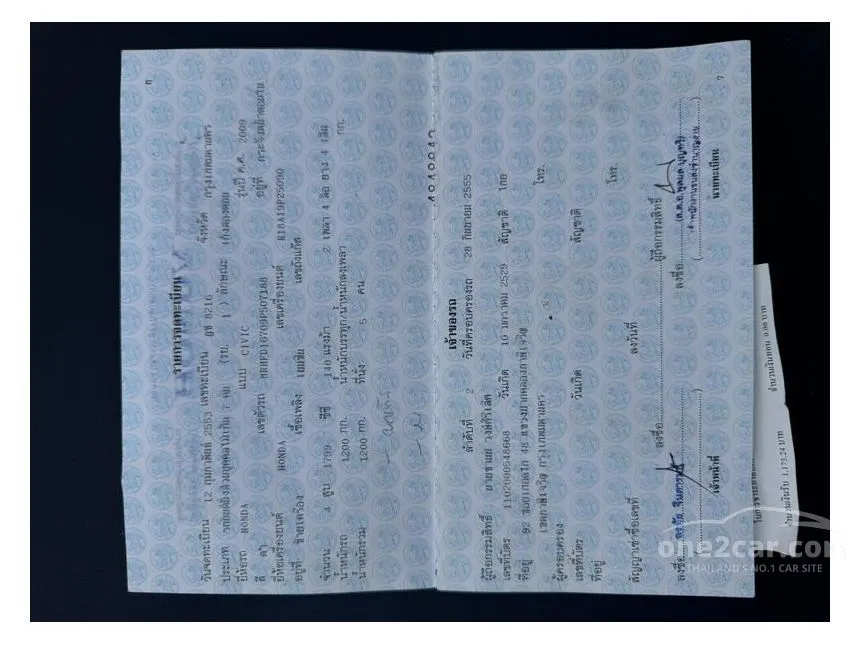 ๖
รายการจดทะเบียน
วันจดทะเบียน 12 กุมภาพันธ์ 2553 เลขทะเบียน ฎษ 8216 จังหวัด กรุงเทพมหานคร
ประเภท รถยนต์นั่งส่วนบุคคลไม่เกิน 7 คน (รย. 1) ลักษณะ เก๋งสองตอน
ยี่ห้อรถ HONDA แบบ CIVIC รุ่นปี ค.ศ. 2009
สี ดำ เลขตัวรถ MRHFD16709P507188 อยู่ที่
ยี่ห้อเครื่องยนต์ HONDA เลขเครื่องยนต์ R18A19P25090
อยู่ที่ ซ้ายเครื่อง เชื้อเพลิง เบนซิน เลขถังแก๊ส
จำนวน 4 สูบ 1799 ซีซี 140 แรงม้า 2 เพลา 4 ล้อ ยาง 4 เส้น
น้ำหนักรถ 1200 กก. น้ำหนักบรรทุก/น้ำหนักลงเพลา กก.
น้ำหนักรวม 1200 กก. ที่นั่ง 5 คน
เจ้าของรถ
ลำดับที่ 2 วันที่ครอบครองรถ 28 กันยายน 2555
ผู้ถือกรรมสิทธิ์
เลขที่บัตร 1102000548668 วันเกิด 10 มกราคม 2529 สัญชาติ ไทย
ที่อยู่ 92 ซอยเพชรเกษม 48 แขวงปากคลองภาษีเจริญ
เขตภาษีเจริญ กรุงเทพมหานคร โทร.
ผู้ครอบครอง
เลขที่บัตร วันเกิด สัญชาติ
ที่อยู่ โทร.
สัญญาเช่าซื้อเลขที่ ลงวันที่
ลงชื่อ ผู้ถือกรรมสิทธิ์
ลงชื่อ
ลงชื่อ
เจ้าหน้าที่
นายทะเบียน
๗
จำนวนเงินรับ 1,175.24 บาท จำนวนเงินทอน 0.00 บาท
one2car.com
THAILAND'S NO.1 CAR SITE